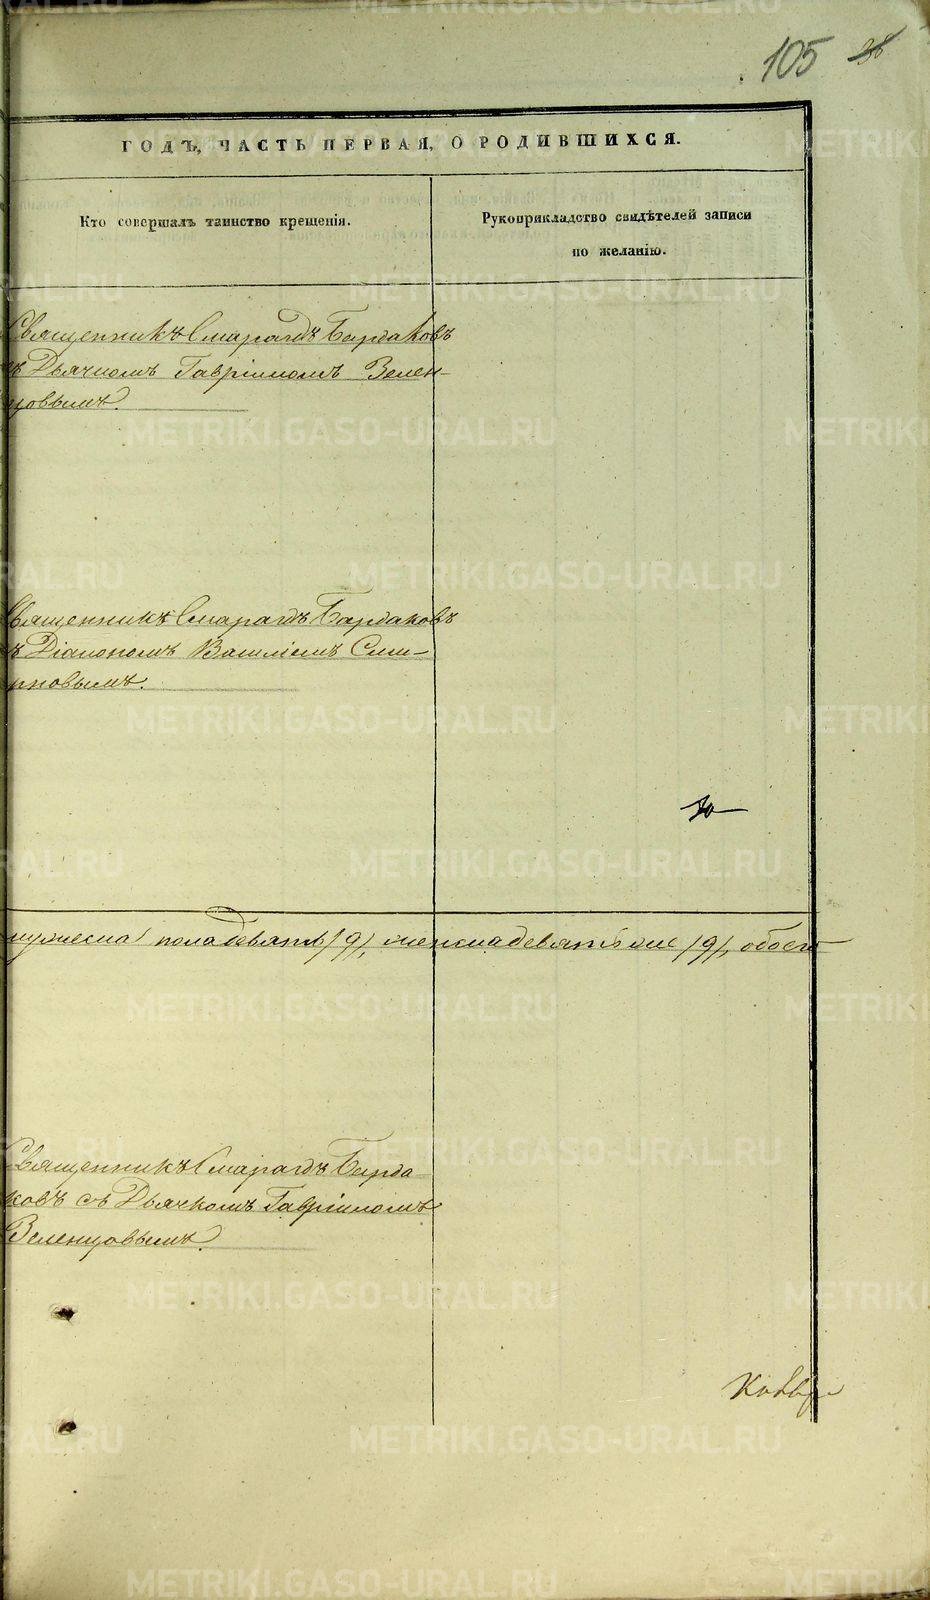 105 38
ГОДЪ, ЧАСТЬ ПЕРВАЯ, О РОДИВШИХСЯ.
Кто совершалъ таинство крещенія.
Рукоприкладство свидѣтелей записи
по желанію.
Священникъ Смарагдъ Бардаковъ
съ Дьячкомъ Гавріиломъ Зелен-
цовымъ.
Священникъ Смарагдъ Бардаковъ
съ Діакономъ Василіемъ Сми-
рновымъ.
мужеска пола девять /9/, женска девять же /9/, обоего
Священникъ Смарагдъ Барда-
ковъ съ Дьячкомъ Гавріиломъ
Зеленцовымъ.
METRIKI.GASO-URAL.RU